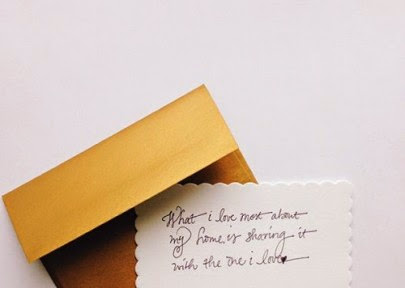 What i love most about
my home is sharing it
with the one i love♥